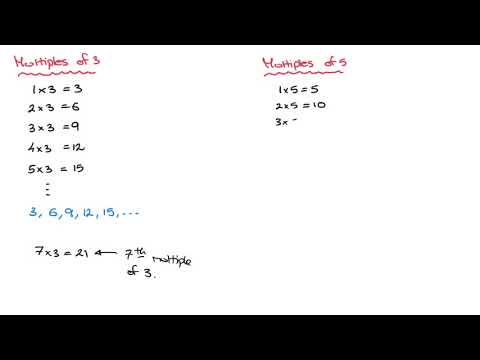 Multiples of 3
1 x 3 = 3
2 x 3 = 6
3 x 3 = 9
4 x 3 = 12
5 x 3 = 15
⋮
3, 6, 9, 12, 15, ...
7 x 3 = 21 ← 7th multiple
of 3.
Multiples of 5
1 x 5 = 5
2 x 5 = 10
3 x -